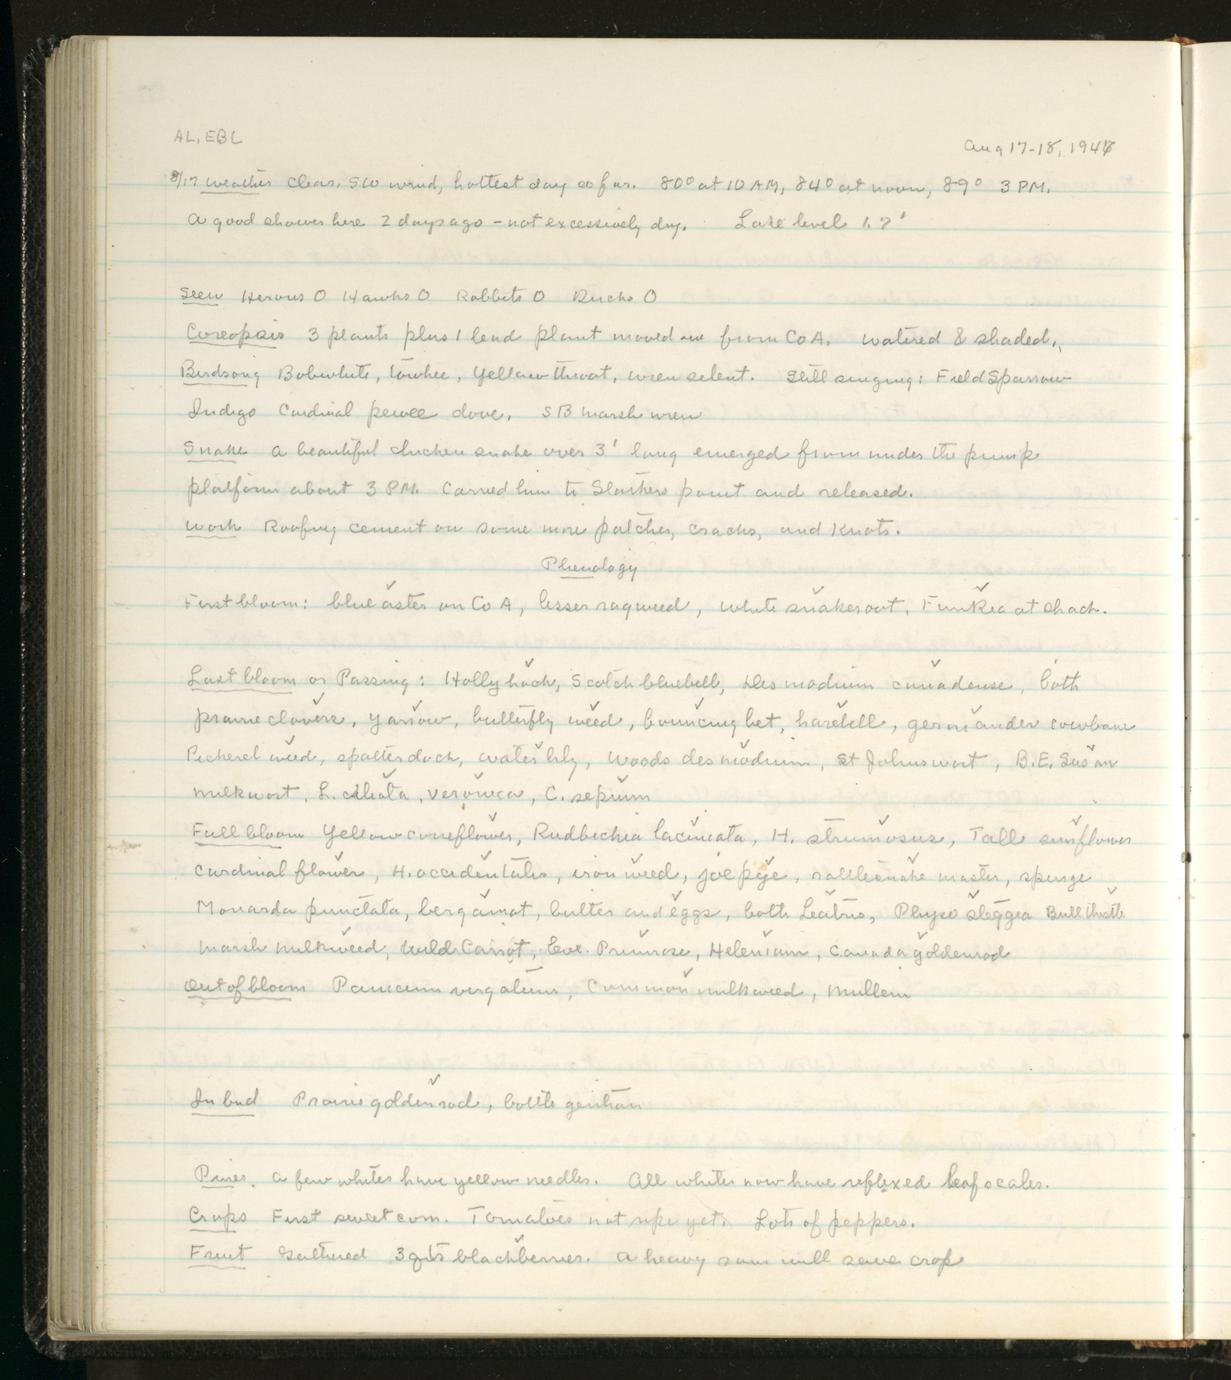 AL, EBL
Aug 17-18, 1946
8/17 Weather clear, SW wind, hottest day so far. 80° at 10 AM, 84° at noon, 89° 3 PM.
A good shower here 2 days ago - not excessively dry. Lake level 1.7'
Seen Herons 0 Hawks 0 Rabbits 0 Ducks 0
Coreopsis 3 plants plus 1 lead plant moved in from CoA. Watered & shaded.
Birdsong Bobwhite, towhee, yellowthroat, wren silent. Still singing: Field Sparrow
Indigo Cardinal pewee dove. SB marsh wren
Snake A beautiful chicken snake over 3' long emerged from under the pump
platform about 3 PM. Carried him to Slashers point and released.
Work Roofing cement on some more patches, cracks, and knots.
Phenology
First bloom: blue aster on CoA, lesser ragweed, white snakeroot, Funkea at shack.
Last bloom or Passing: Hollyhock, Scotch bluebell, Desmodium canadense, both
prairie clovers, yarrow, butterfly weed, bouncing bet, harebell, germander cowbane
Pickerel weed, spatterdock, water lily, woods desmodium, St Johnswort, B.E. Susan
milkwort, L. ciliata, veronica, C. sepium
Full bloom Yellow coneflower, Rudbeckia laciniata, H. strumosus, Tall sunflower
Cardinal flower, H. occidentalis, iron weed, joe pye, rattlesnake master, spurge
Monarda punctata, bergamot, butter and eggs, both Leatris, Physostegia Bull thistle
marsh milkweed, Wild Carrot, Eve. Primrose, Helenium, Canada goldenrod
Out of bloom Panicum virgatum, Common milkweed, Mullein
In bud Prairie goldenrod, bottle gentian
Pines. A few whites have yellow needles. All whites now have reflexed leaf scales.
Crops First sweet corn. Tomatoes not ripe yet. Lots of peppers.
Fruit Gathered 3 qts blackberries. A heavy rain will save crop